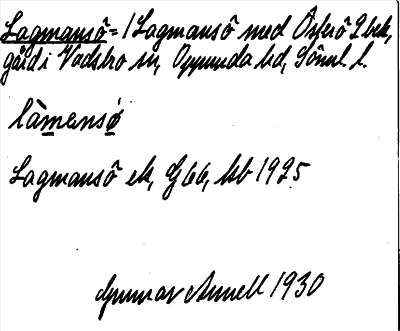 Lagmansö = / Lagmansö med Österö 2 bek,
gård i Vadsbro sn, Oppunda hd, Söml. l.
làmensø
Lagmansö ek, G 66, kb 1925
Gunnar Annell 1930